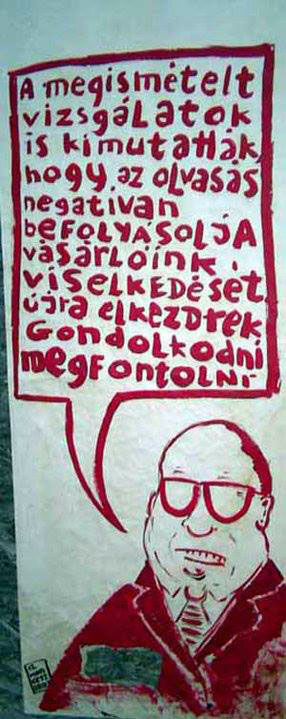 A megismételt
vizsgálatok
is kimutatták,
hogy, az olvasás
negatívan
befolyásolja
vásárlóink
viselkedését.
újra elkezdtek
Gondolkodni
megfontolni